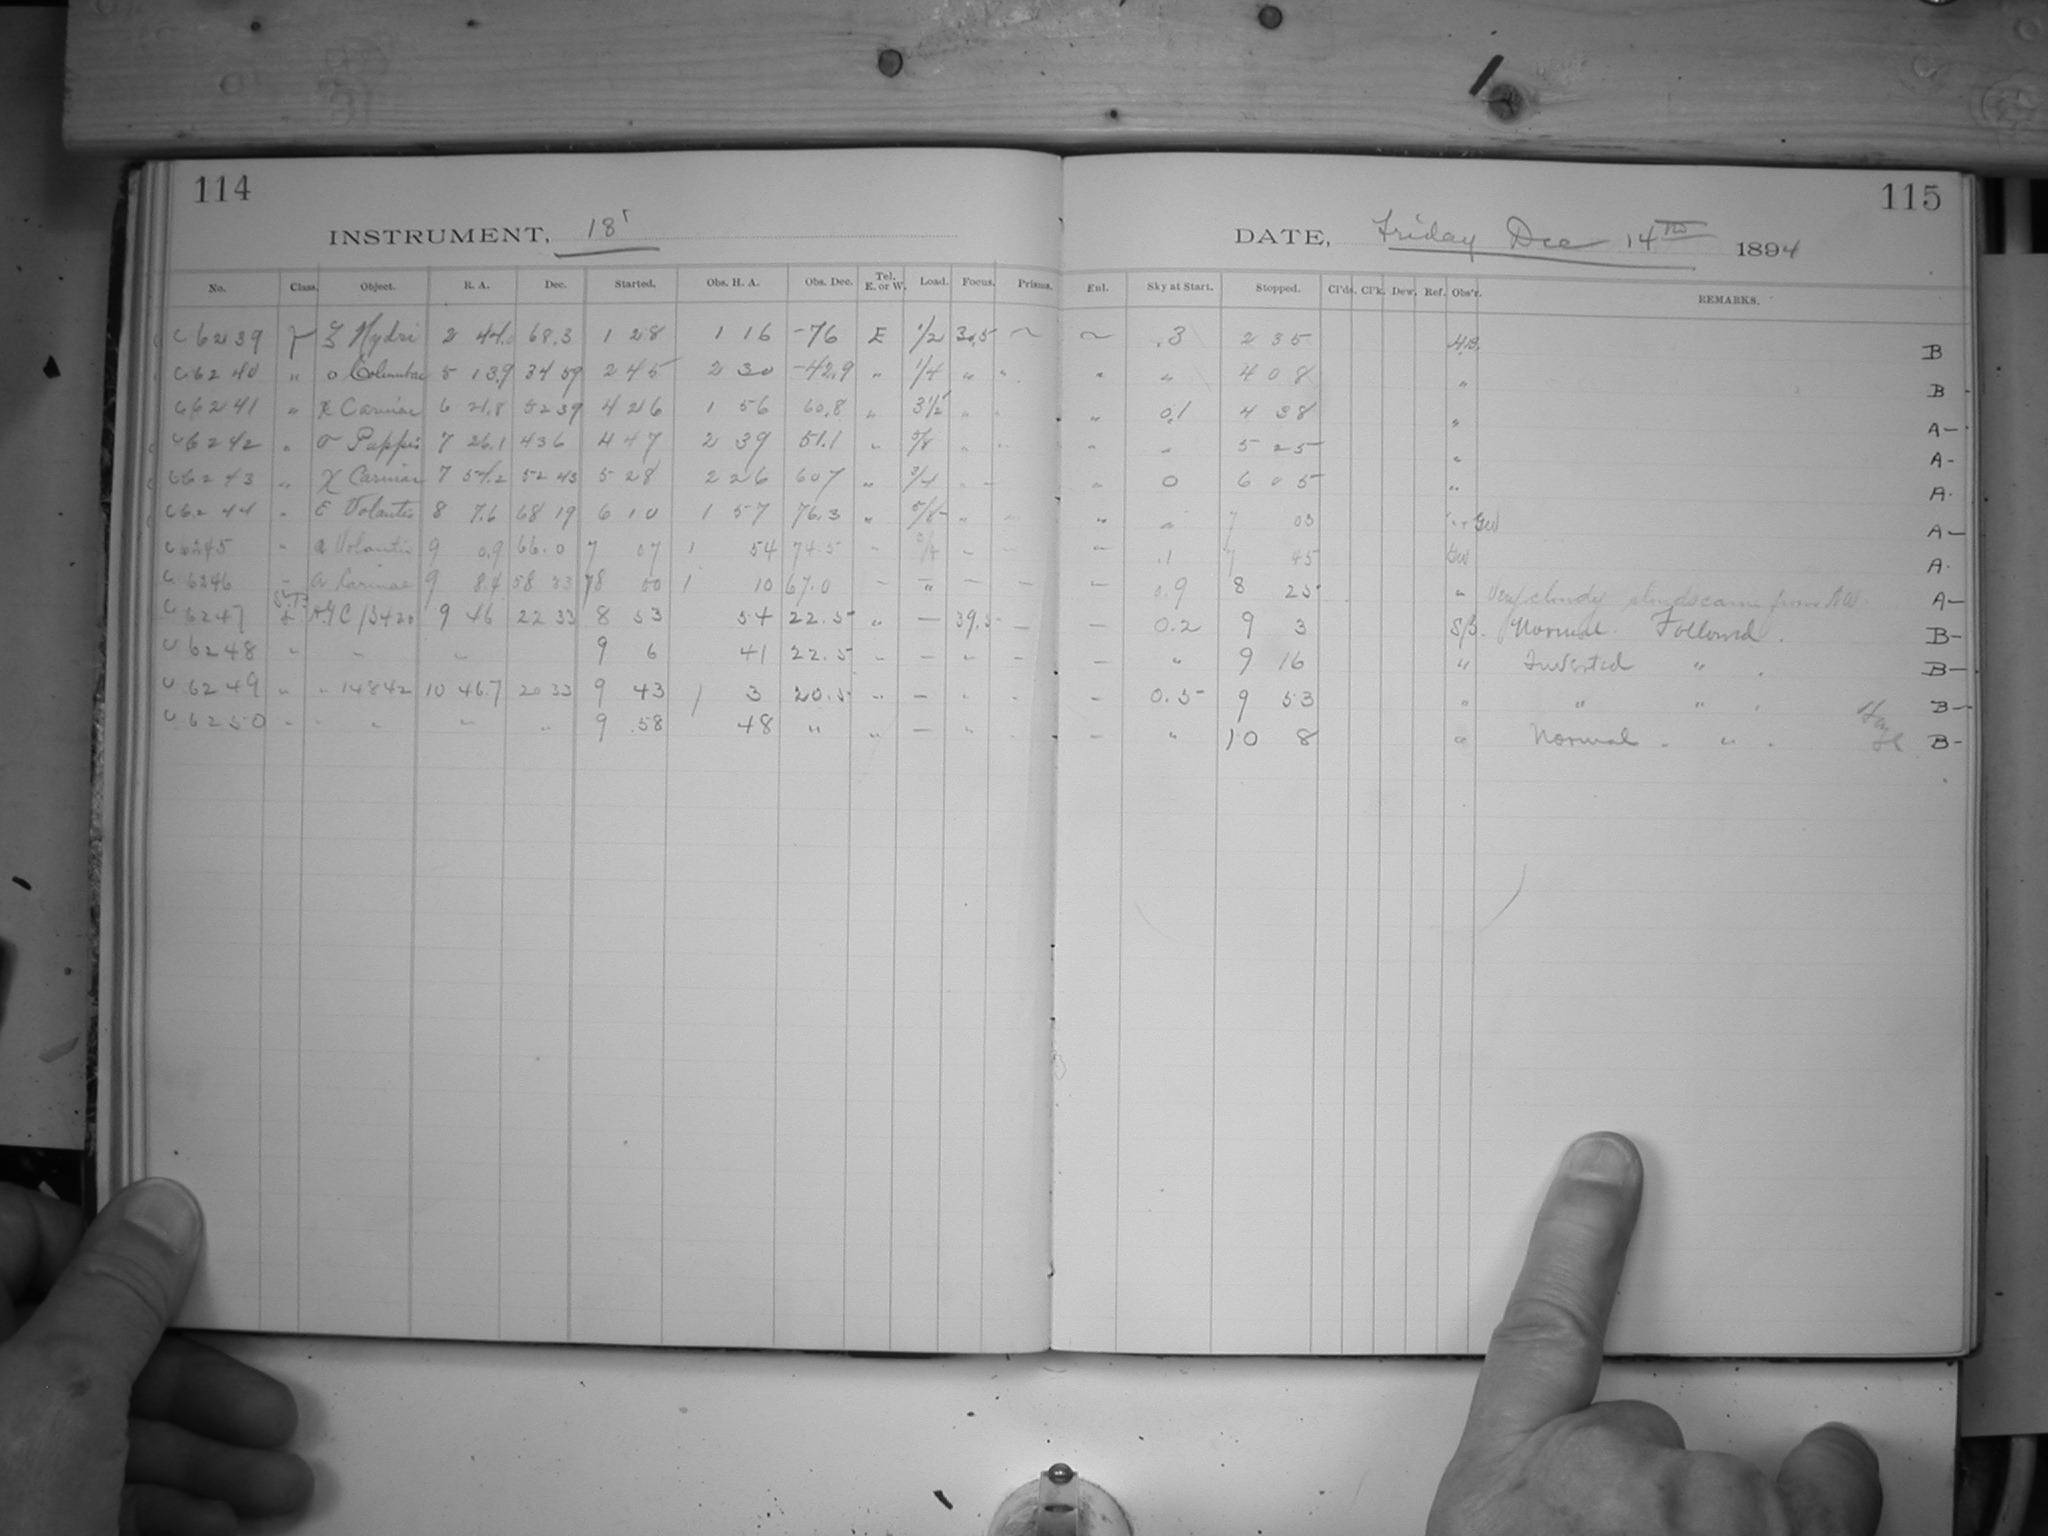 114
INSTRUMENT, 18'
No. Class. Object. R. A. Dec. Started. Obs. H. A. Obs. Dec. Tel. E. or W. Load. Focus. Prisms.
C 6239 ξ Hydri 2 44.0 68.3 1 28 1 16 -76 E 1/2 30.5 ~
C 6240 " o Columbae 5 13.9 34 59 2 45 2 30 -42.9 " 1/4 " "
C 6241 " χ Carinae 6 21.8 52 39 4 26 1 56 60.8 " 3 1/2 " "
C 6242 " σ Puppis 7 26.1 43 6 4 47 2 39 51.1 " 5/8 " "
C 6243 " χ Carinae 7 54.2 52 43 5 28 2 26 60 7 " 3/4 " "
C 6244 " E Volantis 8 7.6 68 19 6 10 1 57 76.3 " 5/8 " "
C 6245 " a Volantis 9 0.9 66.0 7 07 1 54 74.5 " 3/4 " "
C 6246 " a Carinae 9 8.4 58 33 8 00 1 10 67.0 " " "
C 6247 AGC 13420 9 46 22 33 8 53 54 22.5 " — 39.5 —
C 6248 " " " 9 6 41 22.5 " — " —
C 6249 " " 14842 10 46.7 20 33 9 43 1 3 20.5 " — " "
C 6250 " " " " " 9 58 48 " " — " "
115
DATE, Friday Dec 14TH 1894
Enl. Sky at Start. Stopped. Cl'ds. Cl'k. Dew. Ref. Obs'r. REMARKS.
~ .3 2 35 H.B. B
" " 4 08 " B -
" 0.1 4 38 " A-
" " 5 25 " A-
" 0 6 05 " A.
" " 7 03 A-
" .1 7 45 A.
— 0.9 8 25 " Very cloudy clouds came from NW. A-
— 0.2 9 3 S/B. Normal. Followed. B-
— " 9 16 " Inverted " . B-
— 0.5 9 53 " " " . B-
— " 10 8 " Normal. " . B-